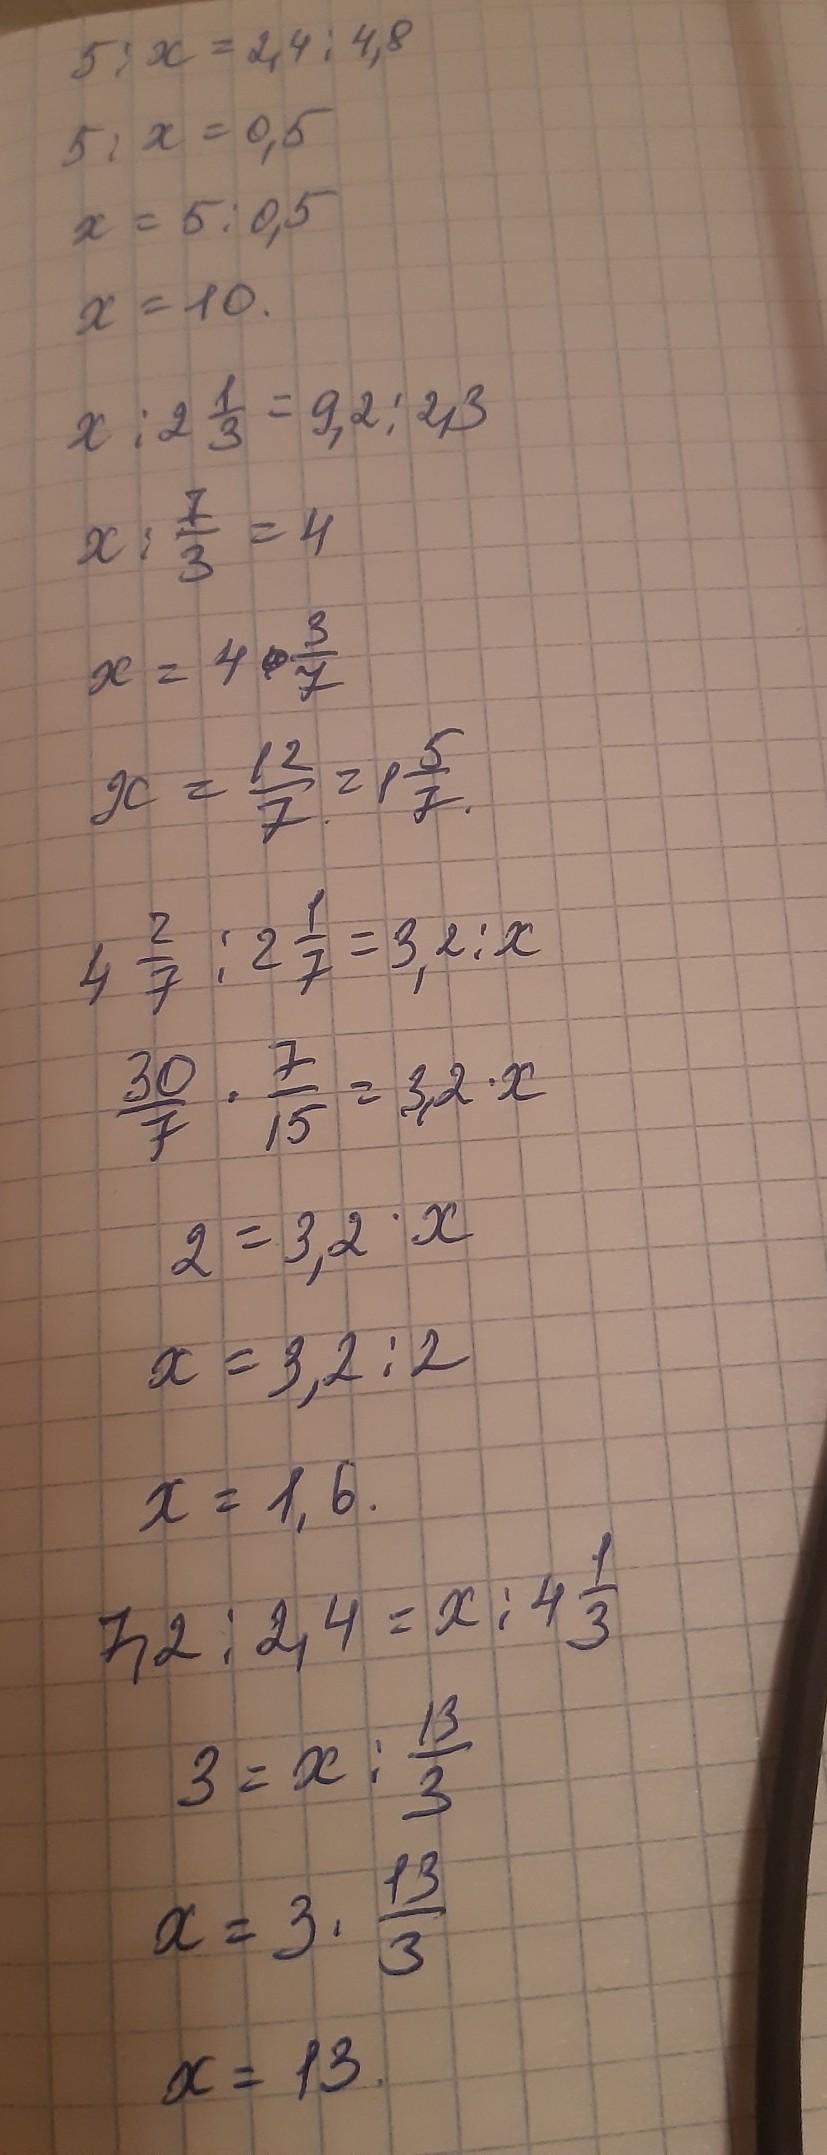 5 : x = 2,4 : 4,8
5 : x = 0,5
x = 5 : 0,5
x = 10.
x : 2 1/3 = 9,2 : 2,3
x : 7/3 = 4
x = 4 · 3/7
x = 12/7 = 1 5/7.
4 2/7 : 2 1/7 = 3,2 : x
30/7 · 7/15 = 3,2 · x
2 = 3,2 · x
x = 3,2 : 2
x = 1,6.
7,2 : 2,4 = x : 4 1/3
3 = x : 13/3
x = 3 · 13/3
x = 13.